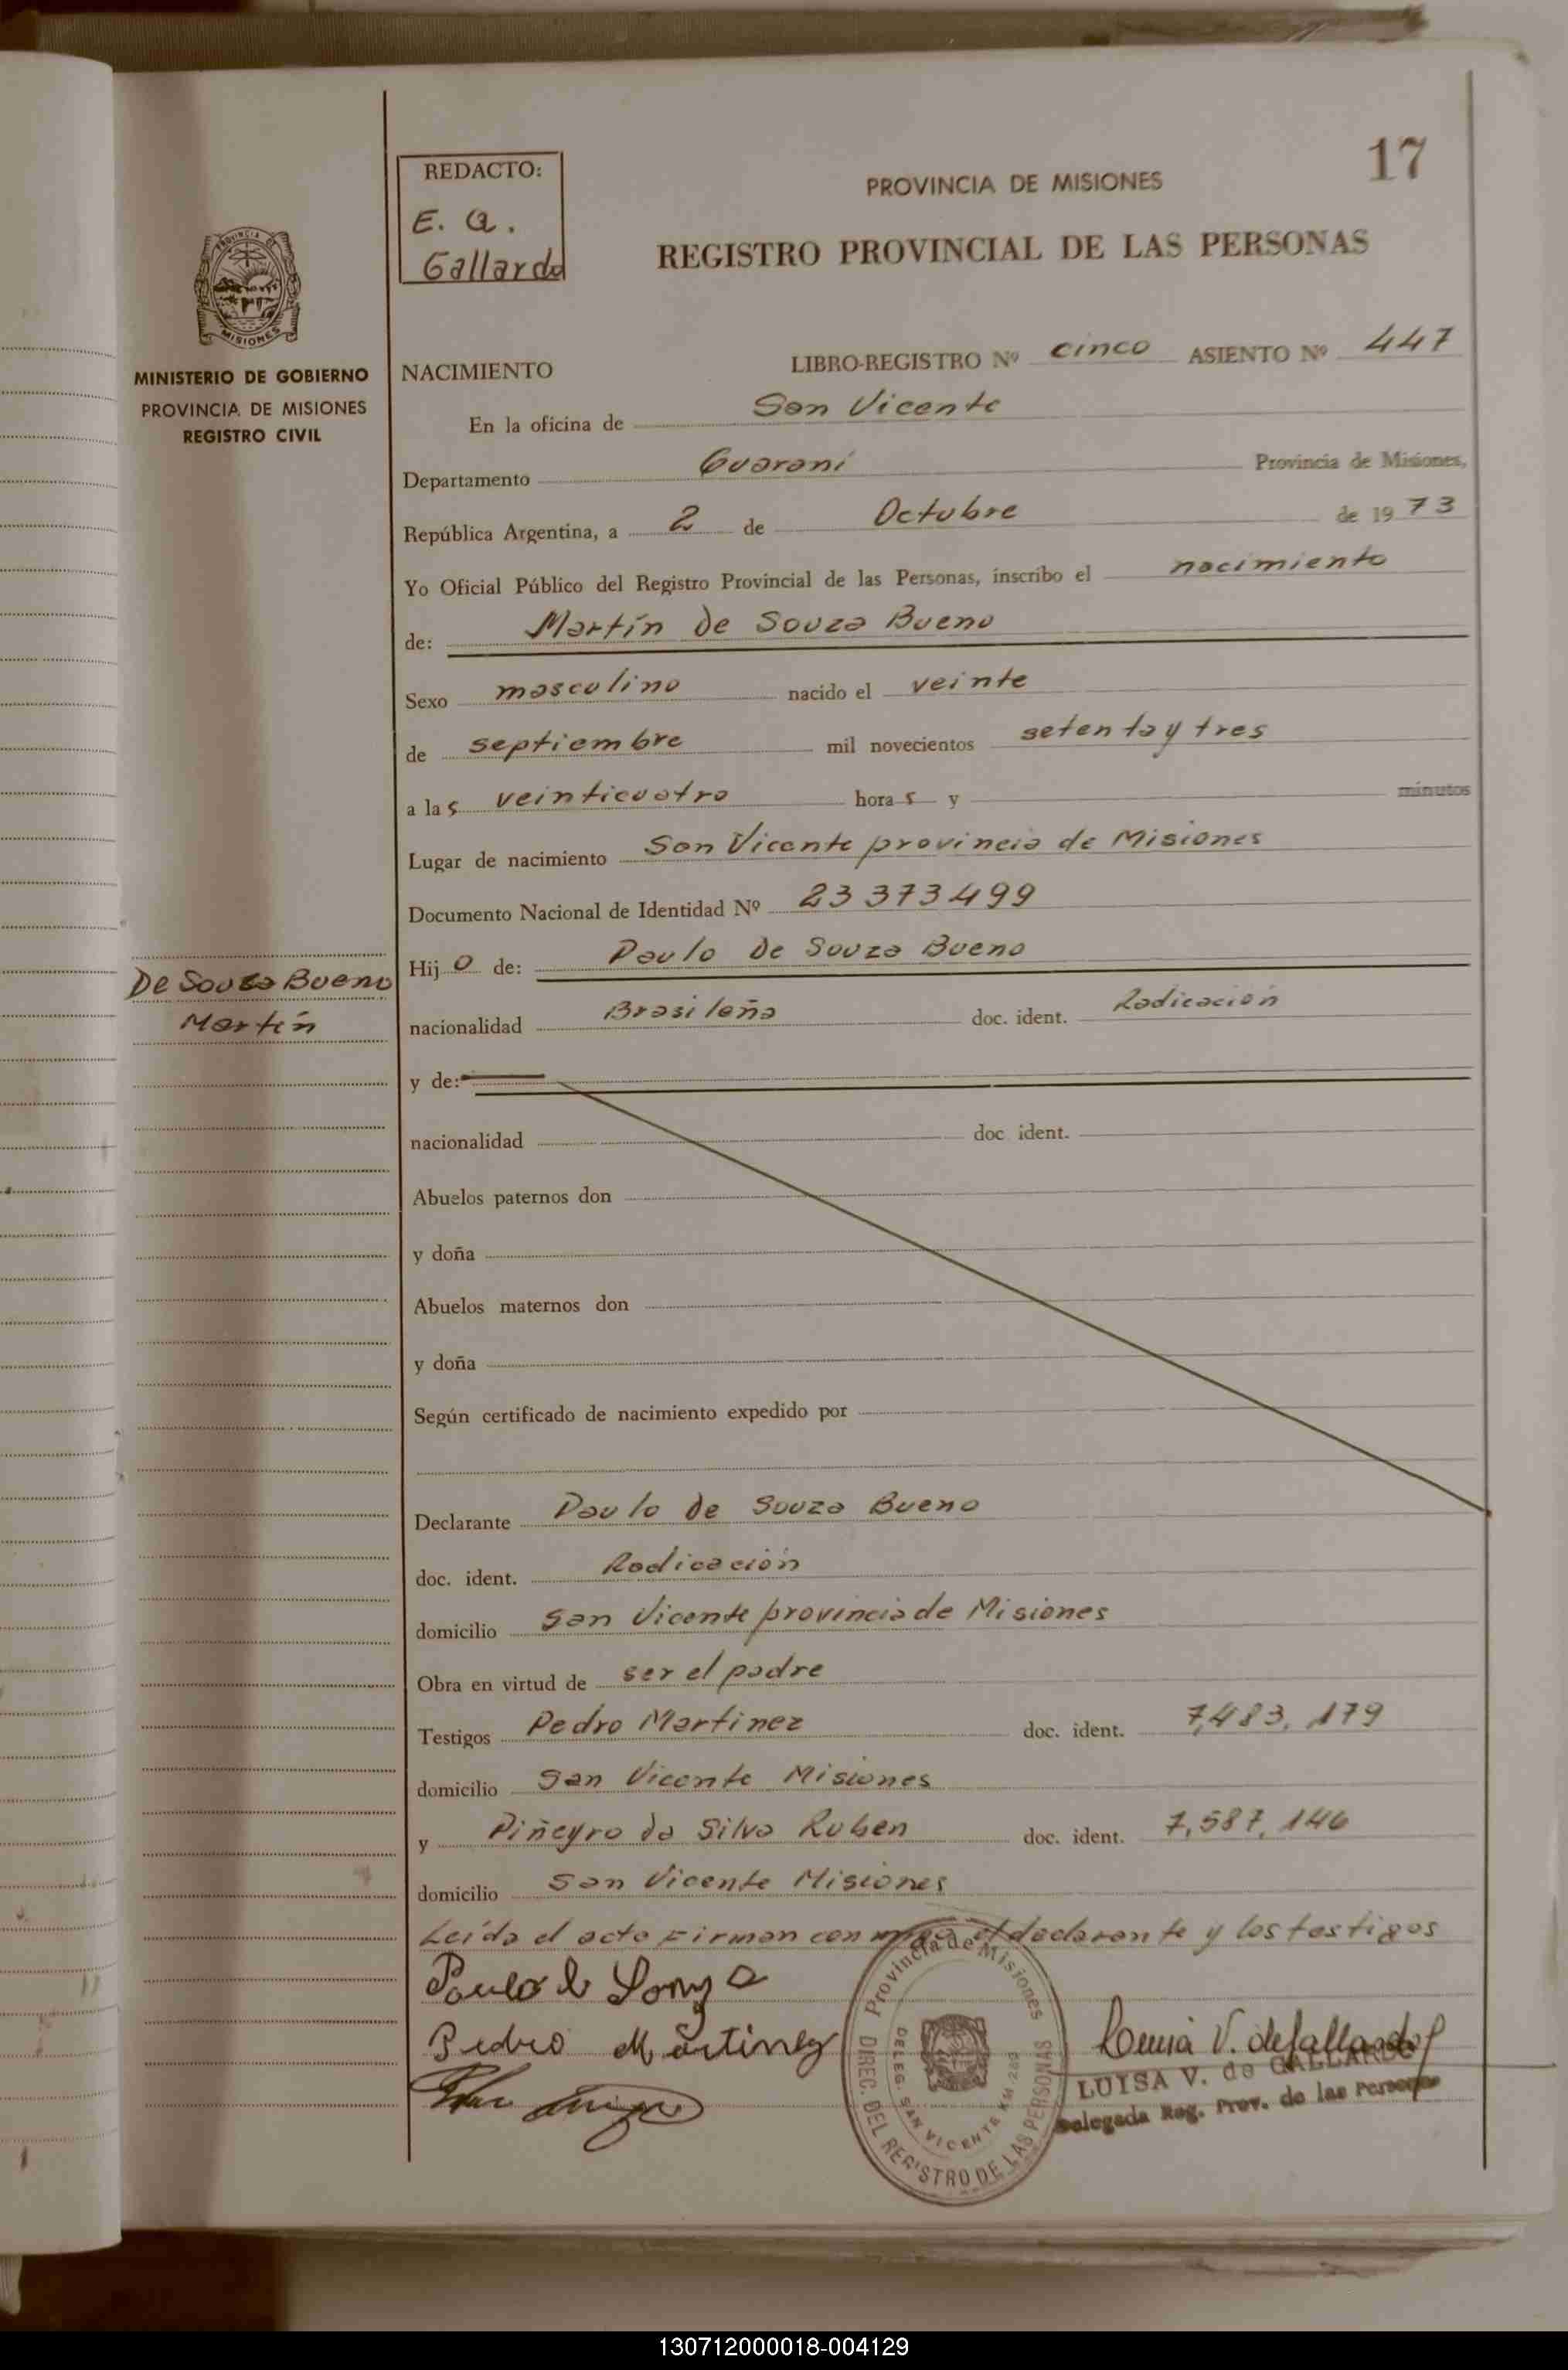 17
REDACTO:
E. A.
Gallardo
PROVINCIA DE MISIONES
REGISTRO PROVINCIAL DE LAS PERSONAS
PROVINCIA DE
MISIONES
MINISTERIO DE GOBIERNO
PROVINCIA DE MISIONES
REGISTRO CIVIL
NACIMIENTO LIBRO-REGISTRO Nº cinco ASIENTO Nº 447
En la oficina de San Vicente
Departamento Guaraní Provincia de Misiones,
República Argentina, a 2 de Octubre de 1973
Yo Oficial Público del Registro Provincial de las Personas, inscribo el nacimiento
de: Martín de Souza Bueno
Sexo masculino nacido el veinte
de septiembre mil novecientos setenta y tres
a las veinticuatro horas y minutos
Lugar de nacimiento San Vicente provincia de Misiones
Documento Nacional de Identidad Nº 23 373499
Hijo de: Paulo de Souza Bueno
De Souza Bueno
Martín
nacionalidad Brasileña doc. ident. Radicación
y de:
nacionalidad doc ident.
Abuelos paternos don
y doña
Abuelos maternos don
y doña
Según certificado de nacimiento expedido por
Declarante Paulo de Souza Bueno
doc. ident. Radicación
domicilio San Vicente provincia de Misiones
Obra en virtud de ser el padre
Testigos Pedro Martinez doc. ident. 7,483,179
domicilio San Vicente Misiones
y Piñeyro da Silva Ruben doc. ident. 7,587,146
domicilio San Vicente Misiones
Leída el acta Firman conmigo el declarante y los testigos
Paulo de Souza
Pedro Martinez
Provincia de Misiones
DIREC. DEL REGISTRO DE LAS PERSONAS
DELEG. SAN VICENTE KM 283
Luisa V. de Gallardo
LUISA V. de GALLARDO
Delegada Reg. Prov. de las Personas
130712000018-004129